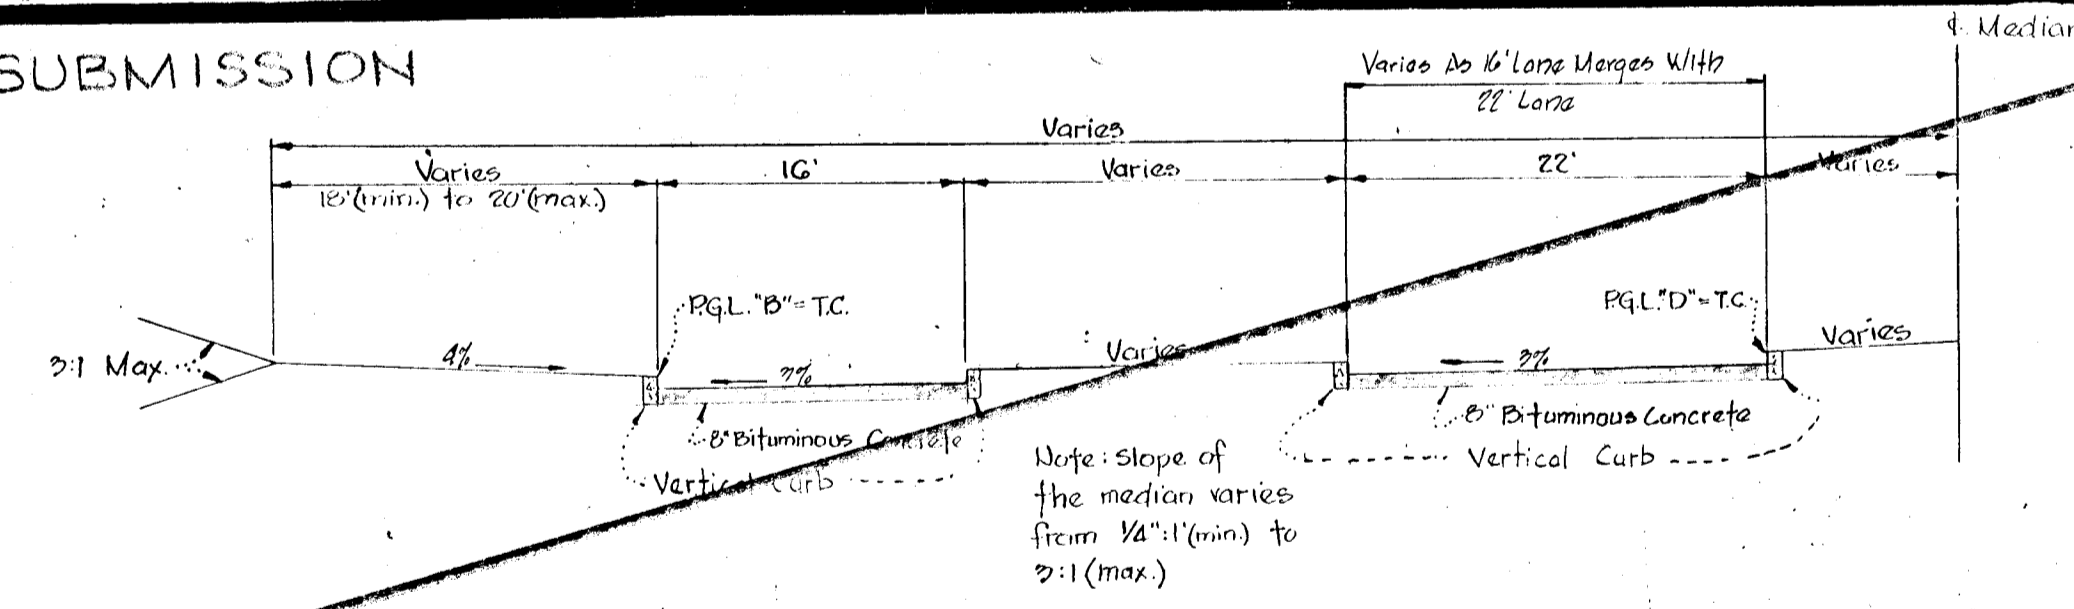 SUBMISSION
℄ Median
Varies As 16' Lane Merges With
22' Lane
Varies
Varies
18'(min.) to 20'(max.)
16'
Varies
22'
Varies
P.G.L. "B" = T.C.
P.G.L. "D" = T.C.
3:1 Max.
4%
3%
Varies
3%
Varies
8" Bituminous Concrete
8" Bituminous Concrete
Vertical Curb
Vertical Curb
Note: Slope of
the median varies
from 1/4":1'(min.) to
3:1 (max.)